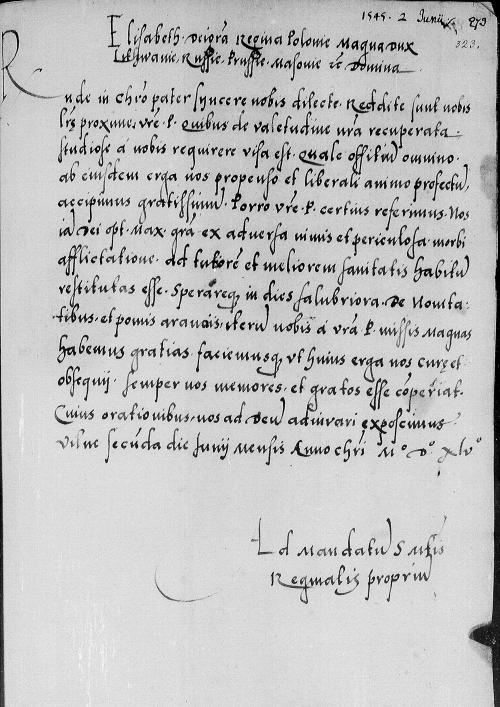 1545. 2 Junii 273
323.
Elisabeth Dei grã Regina Polonie Magna Dux
Lithwanie, Russie, Prussie, Masovie &c Domina
Rnde in chrõ pater syncere nobis dilecte. Reddite sunt nobis
lrẽ proxime vrẽ. P. quibus de valetudine nrã recuperata
studiose a nobis requirere visa est. Quale offitiũ omnino
ab eiusdem erga nos propenso et liberali animo profectũ
accepimus gratissimũ. Porro vrẽ. P. certius referimus. Nos
iã Dei opt. Max. grã ex adversa nimis et periculosa morbi
afflictatione. ad tutiorẽ et meliorem sanitatis habitũ
restitutas esse. Sperareq; in dies salubriora. De Novita-
tibus et pomis arancis iterũ nobis a vrã P. missis magnas
habemus gratias. faciemusq; vt huius erga nos curę et
obsequij semper nos memores et gratos esse cõperiat.
Cuius orationibus nos ad Deũ adiuvari exposcimus
Vilne secũda die Junij mensis Anno chrĩ Mº Dº xlvº
Ad mandatũ S Mtis
Reginalis propriũ